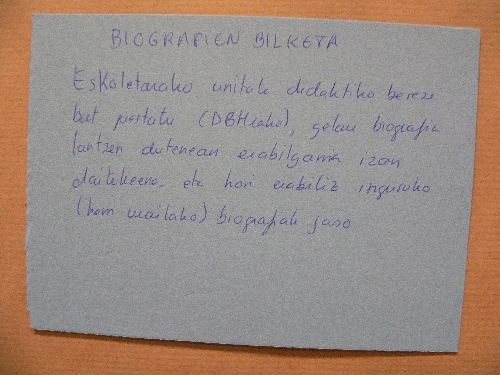 BIOGRAFIEN BILKETA
Eskoletarako unitate didaktiko berezi
bat prestatu (DBHrako), gelan biografia
lantzen dutenean erabilgarria izan
daitekeena, eta hori erabiliz inguruko
(herri mailako) biografiak jaso